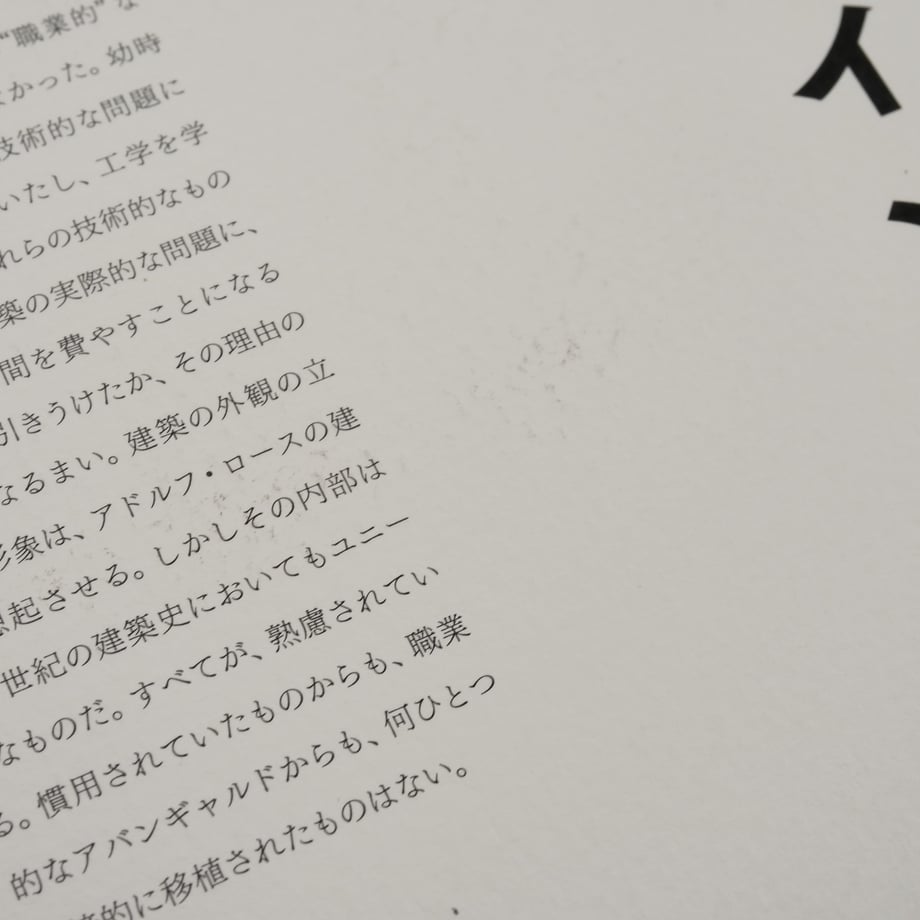 “職業的”な
かった。幼時
技術的な問題に
いたし、工学を学
れらの技術的なもの
築の実際的な問題に、
間を費やすことになる
引きうけたか、その理由の
なるまい。建築の外観の立
形象は、アドルフ・ロースの建
想起させる。しかしその内部は
世紀の建築史においてもユニー
なものだ。すべてが、熟慮されてい
る。慣用されていたものからも、職業
的なアバンギャルドからも、何ひとつ
的に移植されたものはない。